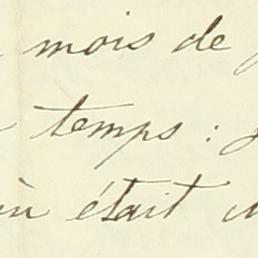 mois de
temps :
était